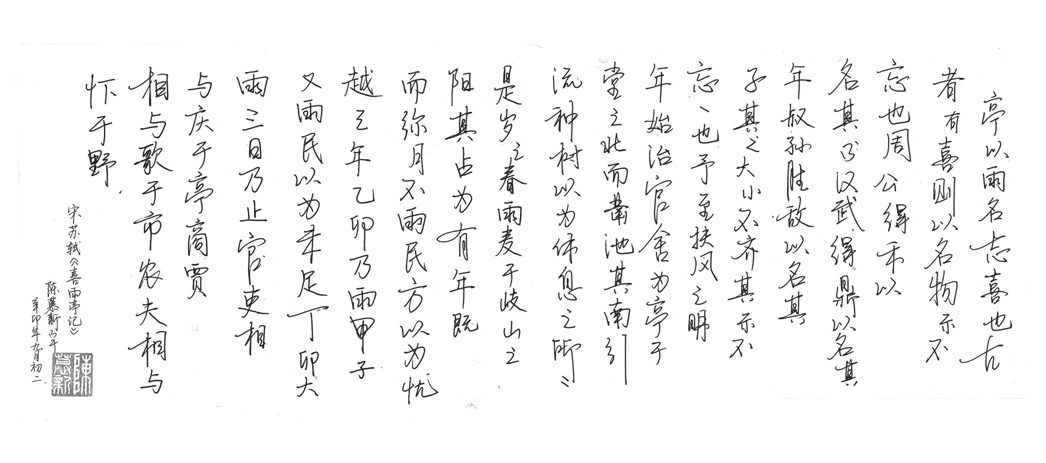 亭以雨名志喜也古
者有喜则以名物示不
忘也周公得禾以
名其书汉武得鼎以名其
年叔孙胜敌以名其
子其之大小不齐其示不
忘一也予至扶风之明
年始治官舍为亭于
堂之北而凿池其南引
流种树以为休息之所
是岁之春雨麦于岐山之
阳其占为有年既
而弥月不雨民方以为忧
越三年乙卯乃雨甲子
又雨民以为未足丁卯大
雨三日乃止官吏相
与庆于亭商贾
相与歌于市农夫相与
忭于野.
宋苏轼《喜雨亭记》
陈慕新书于
辛卯年九月初二
陳慕新